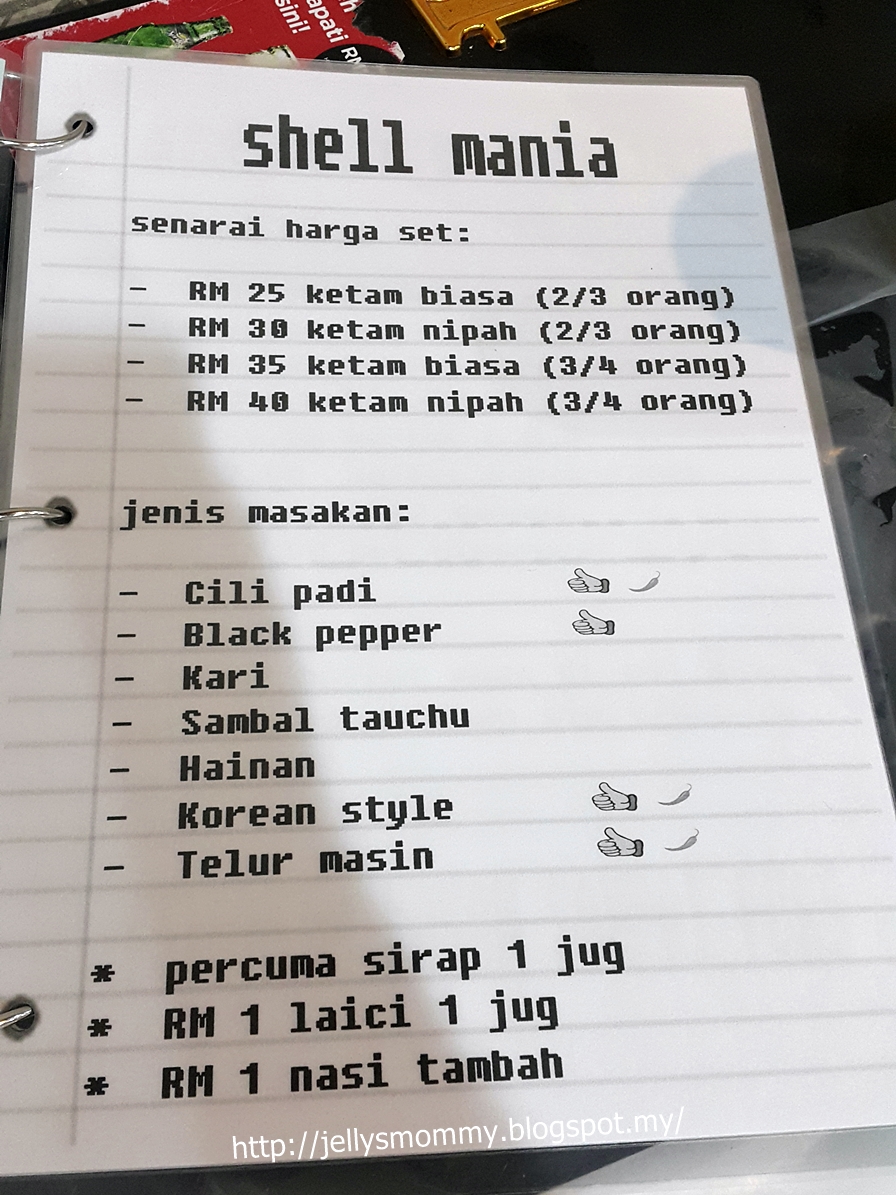 apati RM
sini!
shell mania
senarai harga set:
- RM 25 ketam biasa (2/3 orang)
- RM 30 ketam nipah (2/3 orang)
- RM 35 ketam biasa (3/4 orang)
- RM 40 ketam nipah (3/4 orang)
jenis masakan:
- Cili padi
- Black pepper
- Kari
- Sambal tauchu
- Hainan
- Korean style
- Telur masin
* percuma sirap 1 jug
* RM 1 laici 1 jug
* RM 1 nasi tambah
http://jellysmommy.blogspot.my/